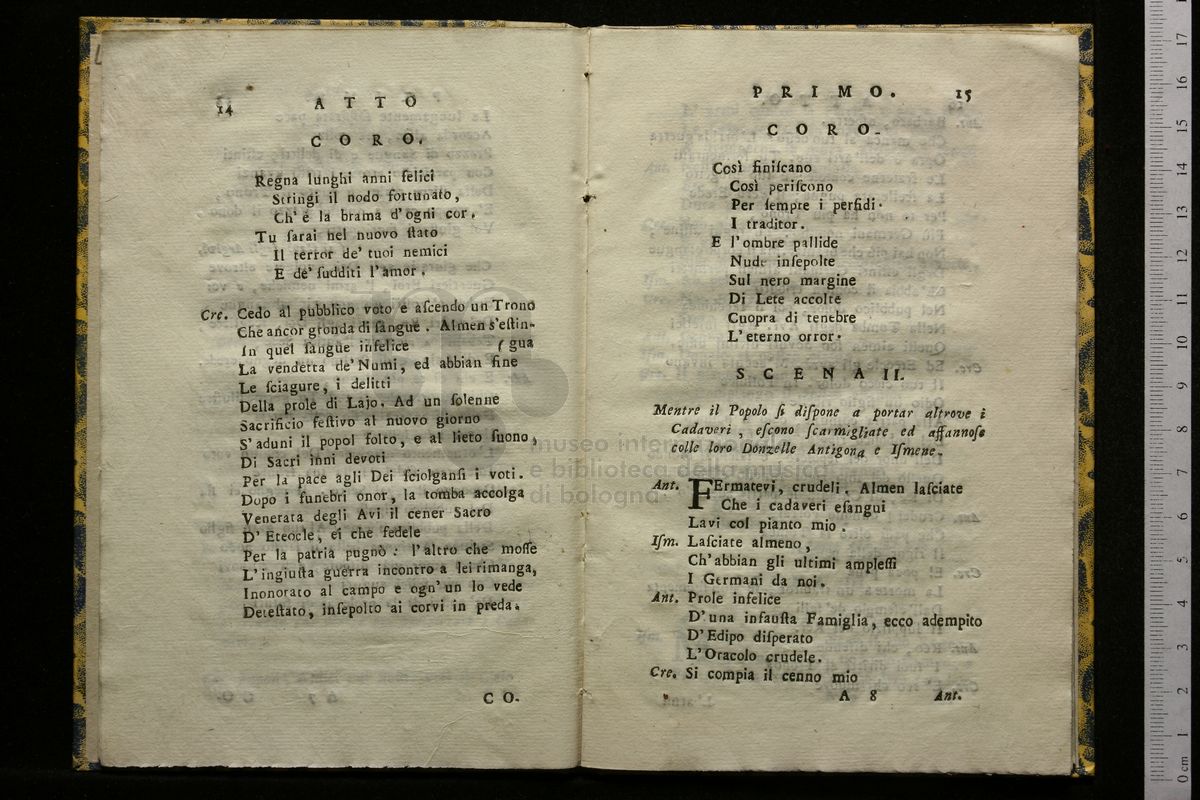 14 ATTO
CORO.
Regna lunghi anni felici
Stringi il nodo fortunato,
Ch' é la brama d' ogni cor.
Tu ſarai nel nuovo ſtato
Il terror de' tuoi nemici
E de' ſudditi l' amor.
Cre. Cedo al pubblico voto e aſcendo un Trono
Che ancor gronda di ſangue. Almen s'eſtin-
In quel ſangue infelice ( gua
La vendetta de' Numi, ed abbian fine
Le ſciagure, i delitti
Della prole di Lajo. Ad un ſolenne
Sacrificio feſtivo al nuovo giorno
S' aduni il popol folto, e al lieto ſuono,
Di Sacri inni devoti
Per la pace agli Dei ſciolganſi i voti.
Dopo i funebri onor, la tomba accolga
Venerata degli Avi il cener Sacro
D' Eteocle, ei che fedele
Per la patria pugnò: l' altro che moſſe
L' ingiuſta guerra incontro a lei rimanga,
Inonorato al campo e ogn' un lo vede
Deteſtato, inſepolto ai corvi in preda.
CO-
PRIMO. 15
CORO-
Così finiſcano
Così periſcono
Per ſempre i perfidi.
I traditor.
E l' ombre pallide
Nude inſepolte
Sul nero margine
Di Lete accolte
Cuopra di tenebre
L' eterno orror.
SCENA II.
Mentre il Popolo ſi diſpone a portar altrove i
Cadaveri, eſcono ſcarmigliate ed affannoſe
colle loro Donzelle Antigona e Iſmene.
Ant. FErmatevi, crudeli. Almen laſciate
Che i cadaveri eſangui
Lavi col pianto mio.
Iſm. Laſciate almeno,
Ch' abbian gli ultimi ampleſſi
I Germani da noi.
Ant. Prole infelice
D' una infauſta Famiglia, ecco adempito
D' Edipo diſperato
L' Oracolo crudele.
Cre. Si compia il cenno mio
A 8 Ant.
museo internazionale
e biblioteca della musica
di bologna
0 cm 1 2 3 4 5 6 7 8 9 10 11 12 13 14 15 16 17